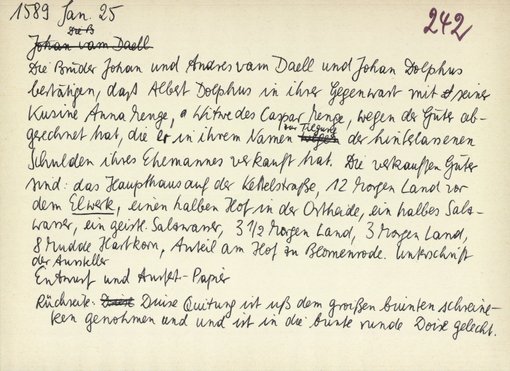 1589 Jan. 25
242
Die B
Johan vam Daell
Die Brüder Johan und Andres vam Daell und Johan Dolphus
bestätigen, daß Albert Dolphus in ihrer Gegenwart mit seiner
Kusine Anna Menge, Witwe des Caspar Menge, wegen der Güter ab-
zur Tilgung
gerechnet hat, die er in ihrem Namen wegen der hinterlassenen
Schulden ihres Ehemannes verkauft hat. Die verkauften Güter
sind: das Haupthaus auf der Kettelstraße, 12 Morgen Land vor
dem Elwerk, einen halben Hof in der Ortheide, ein halbes Salz-
wasser, ein geistl. Salzwasser, 3 1/2 Morgen Land, 3 Morgen Land,
8 Mudde Hartkorn, Anteil am Hof zu Blomenrode. Unterschrift
der Aussteller
Entwurf und Papier
Rückseite: Duise Quitung ist uß dem großen bunten schreine-
ken genohmen und und ist in die bunte runde Doise gelecht.